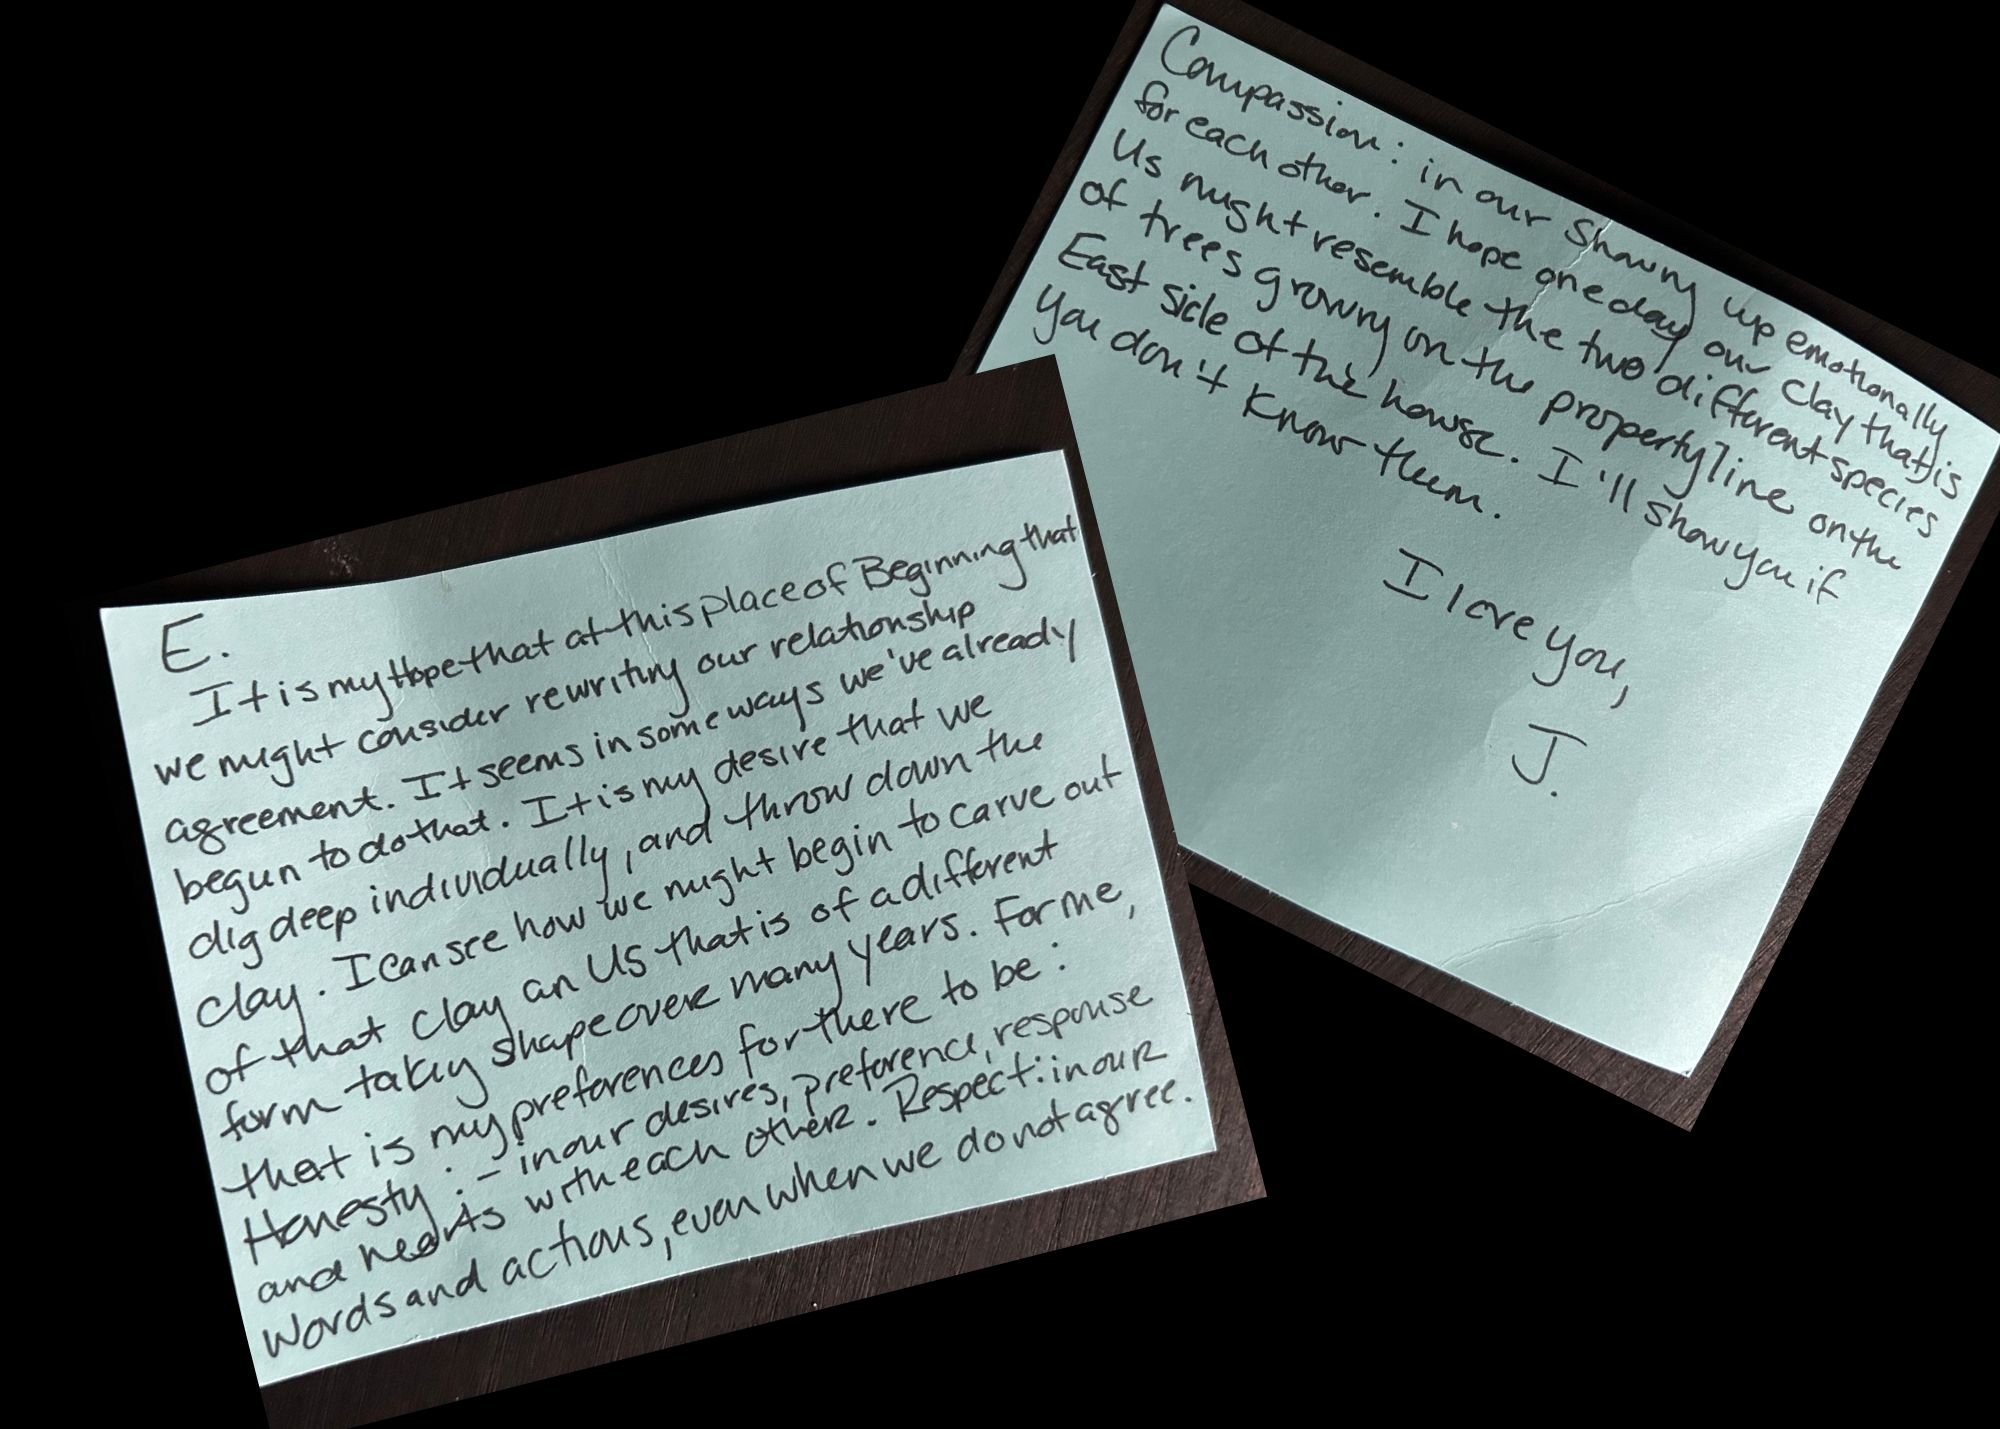 E.
It is my Hope that at this place of Beginning that
we might consider rewriting our relationship
agreement. It seems in some ways we've already
begun to do that. It is my desire that we
dig deep individually, and throw down the
clay. I can see how we might begin to carve out
of that clay an US that is of a different
form taking shape over many years. For me,
that is my preferences for there to be:
Honesty: - in our desires, preference, response
and hearts with each other. Respect: in our
words and actions, even when we do not agree.
Compassion: in our showing up emotionally
for each other. I hope one day our clay that is
Us might resemble the two different species
of trees growing on the property line on the
East side of the house. I'll show you if
you don't know them.
I love you,
J.